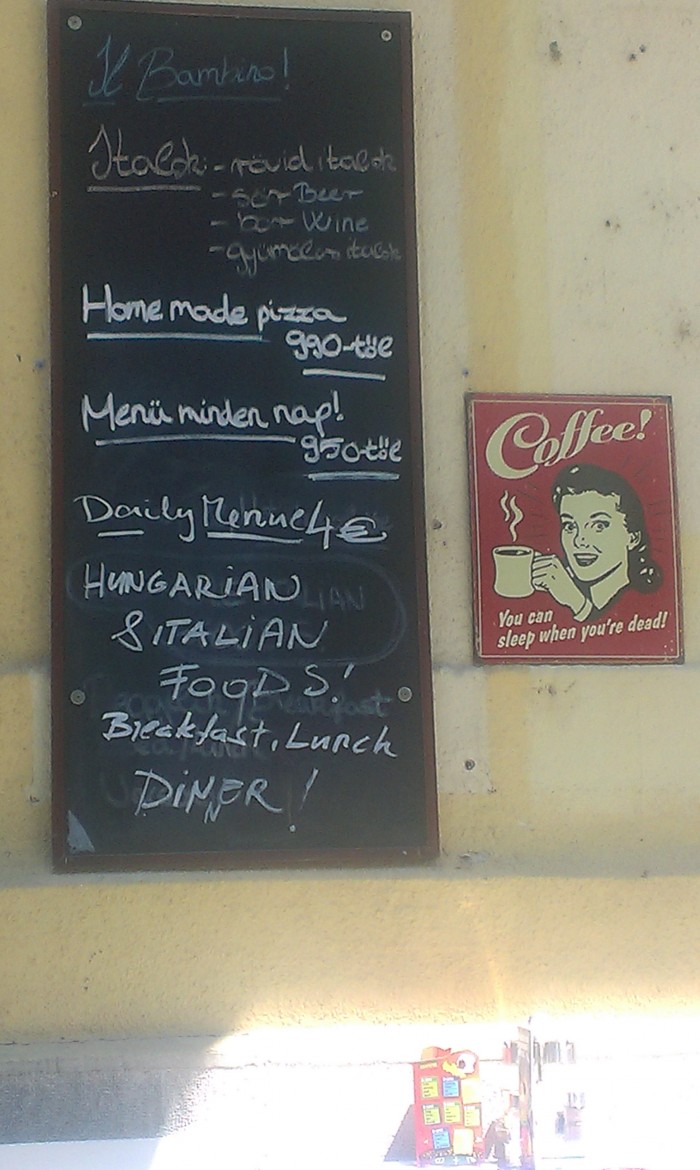 Il Bambino!
Italok: - rövid italok
- sör Beer
- bor Wine
- gyümölcs italok
Home made pizza
990-től
Menü minden nap!
950-től
Daily Menue 4€
HUNGARIAN
& ITALIAN
FOODS!
Breakfast, Lunch
DINNER!
Coffee!
You can
sleep when you're dead!